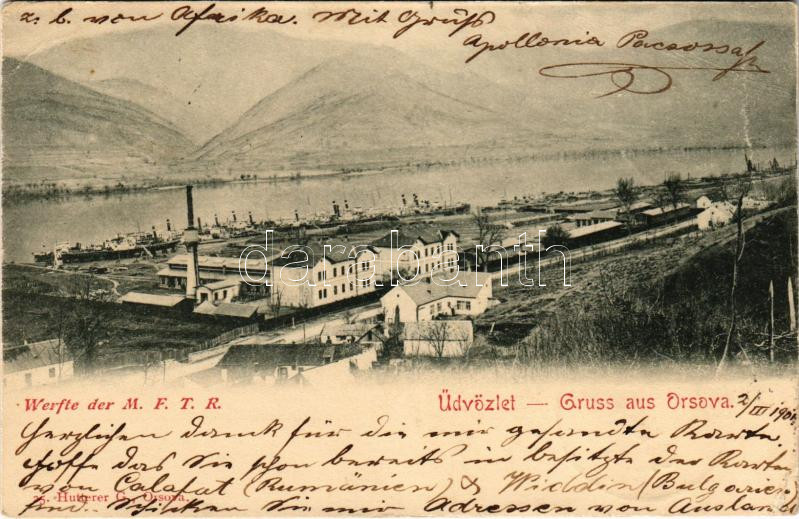 z. b. von Afrika. Mit Gruß
Apollonia
darabanth
Werfte der M. F. T. R.
Üdvözlet — Gruss aus Orsova.
2/III 190
Herzlichen dank für die mir gesandte Karte.
Hoffe das Sie schon bereits in besitze der Karten
von Calafat (Rumänien) & Widdin (Bulgarien
sind. Schicken Sie mir Adressen von Ausland
25. Hutterer G., Orsova.